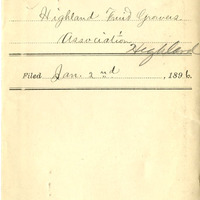 Highland Fruit Growers
Association
Highland
Filed Jan. 2nd, 1896.